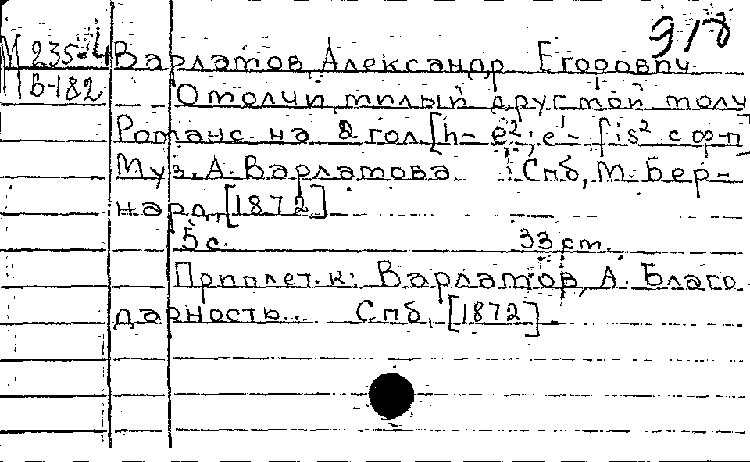 918
М 235-4 Варламов, Александр Егорович
В-182 Отолчи, милый друг мой молч
Романс на 2 гол. [h-e²; e'-fis² с ф-п]
Муз. А. Варламова Спб, М. Бер-
нард, [1872]
5 с. 33 cm.
Приплет. к: Варламов, А. Благо
дарность.. Спб, [1872]